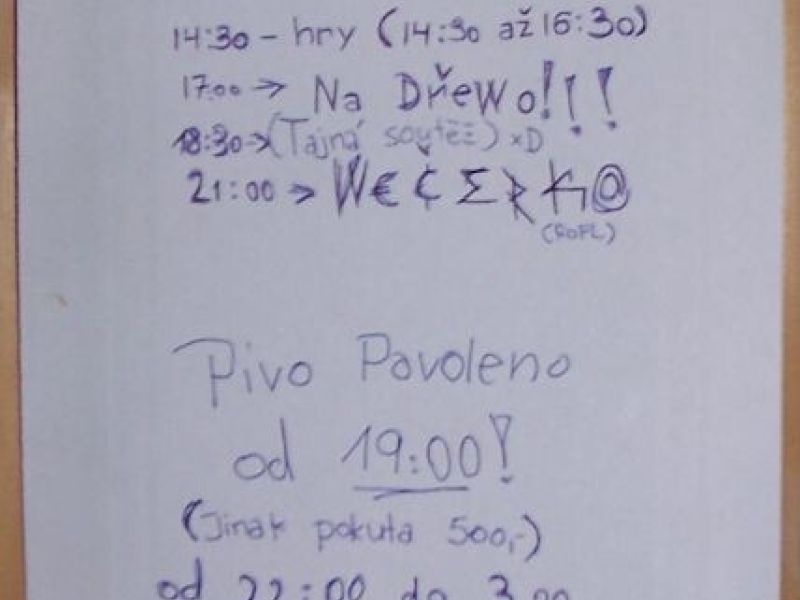 14:30 - hry (14:30 až 16:30)
17:00 → Na Dřewo!!!
18:30 → (Tajná soutěž) xD
21:00 → W€ČΣRK@
(ROFL)
Pivo Povoleno
od 19:00!
(Jinak pokuta 500,-)
od 22:00 do 3:00